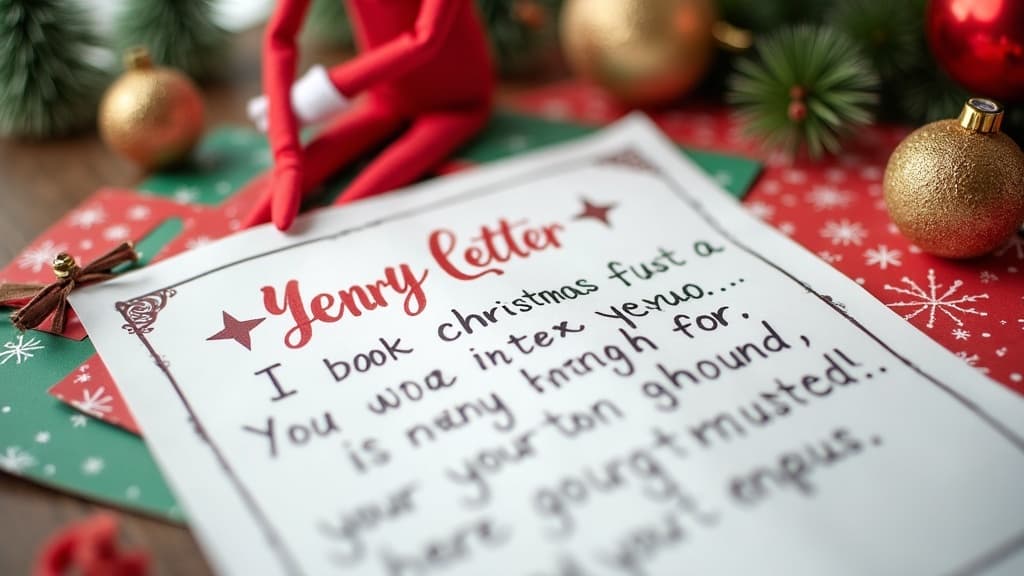 Yenry Letter
I book christmas fust a
You woa in tex yevuo....
is nany tnringh for.
your your ton ghound,
here gourgt musted!.
you't enpus.